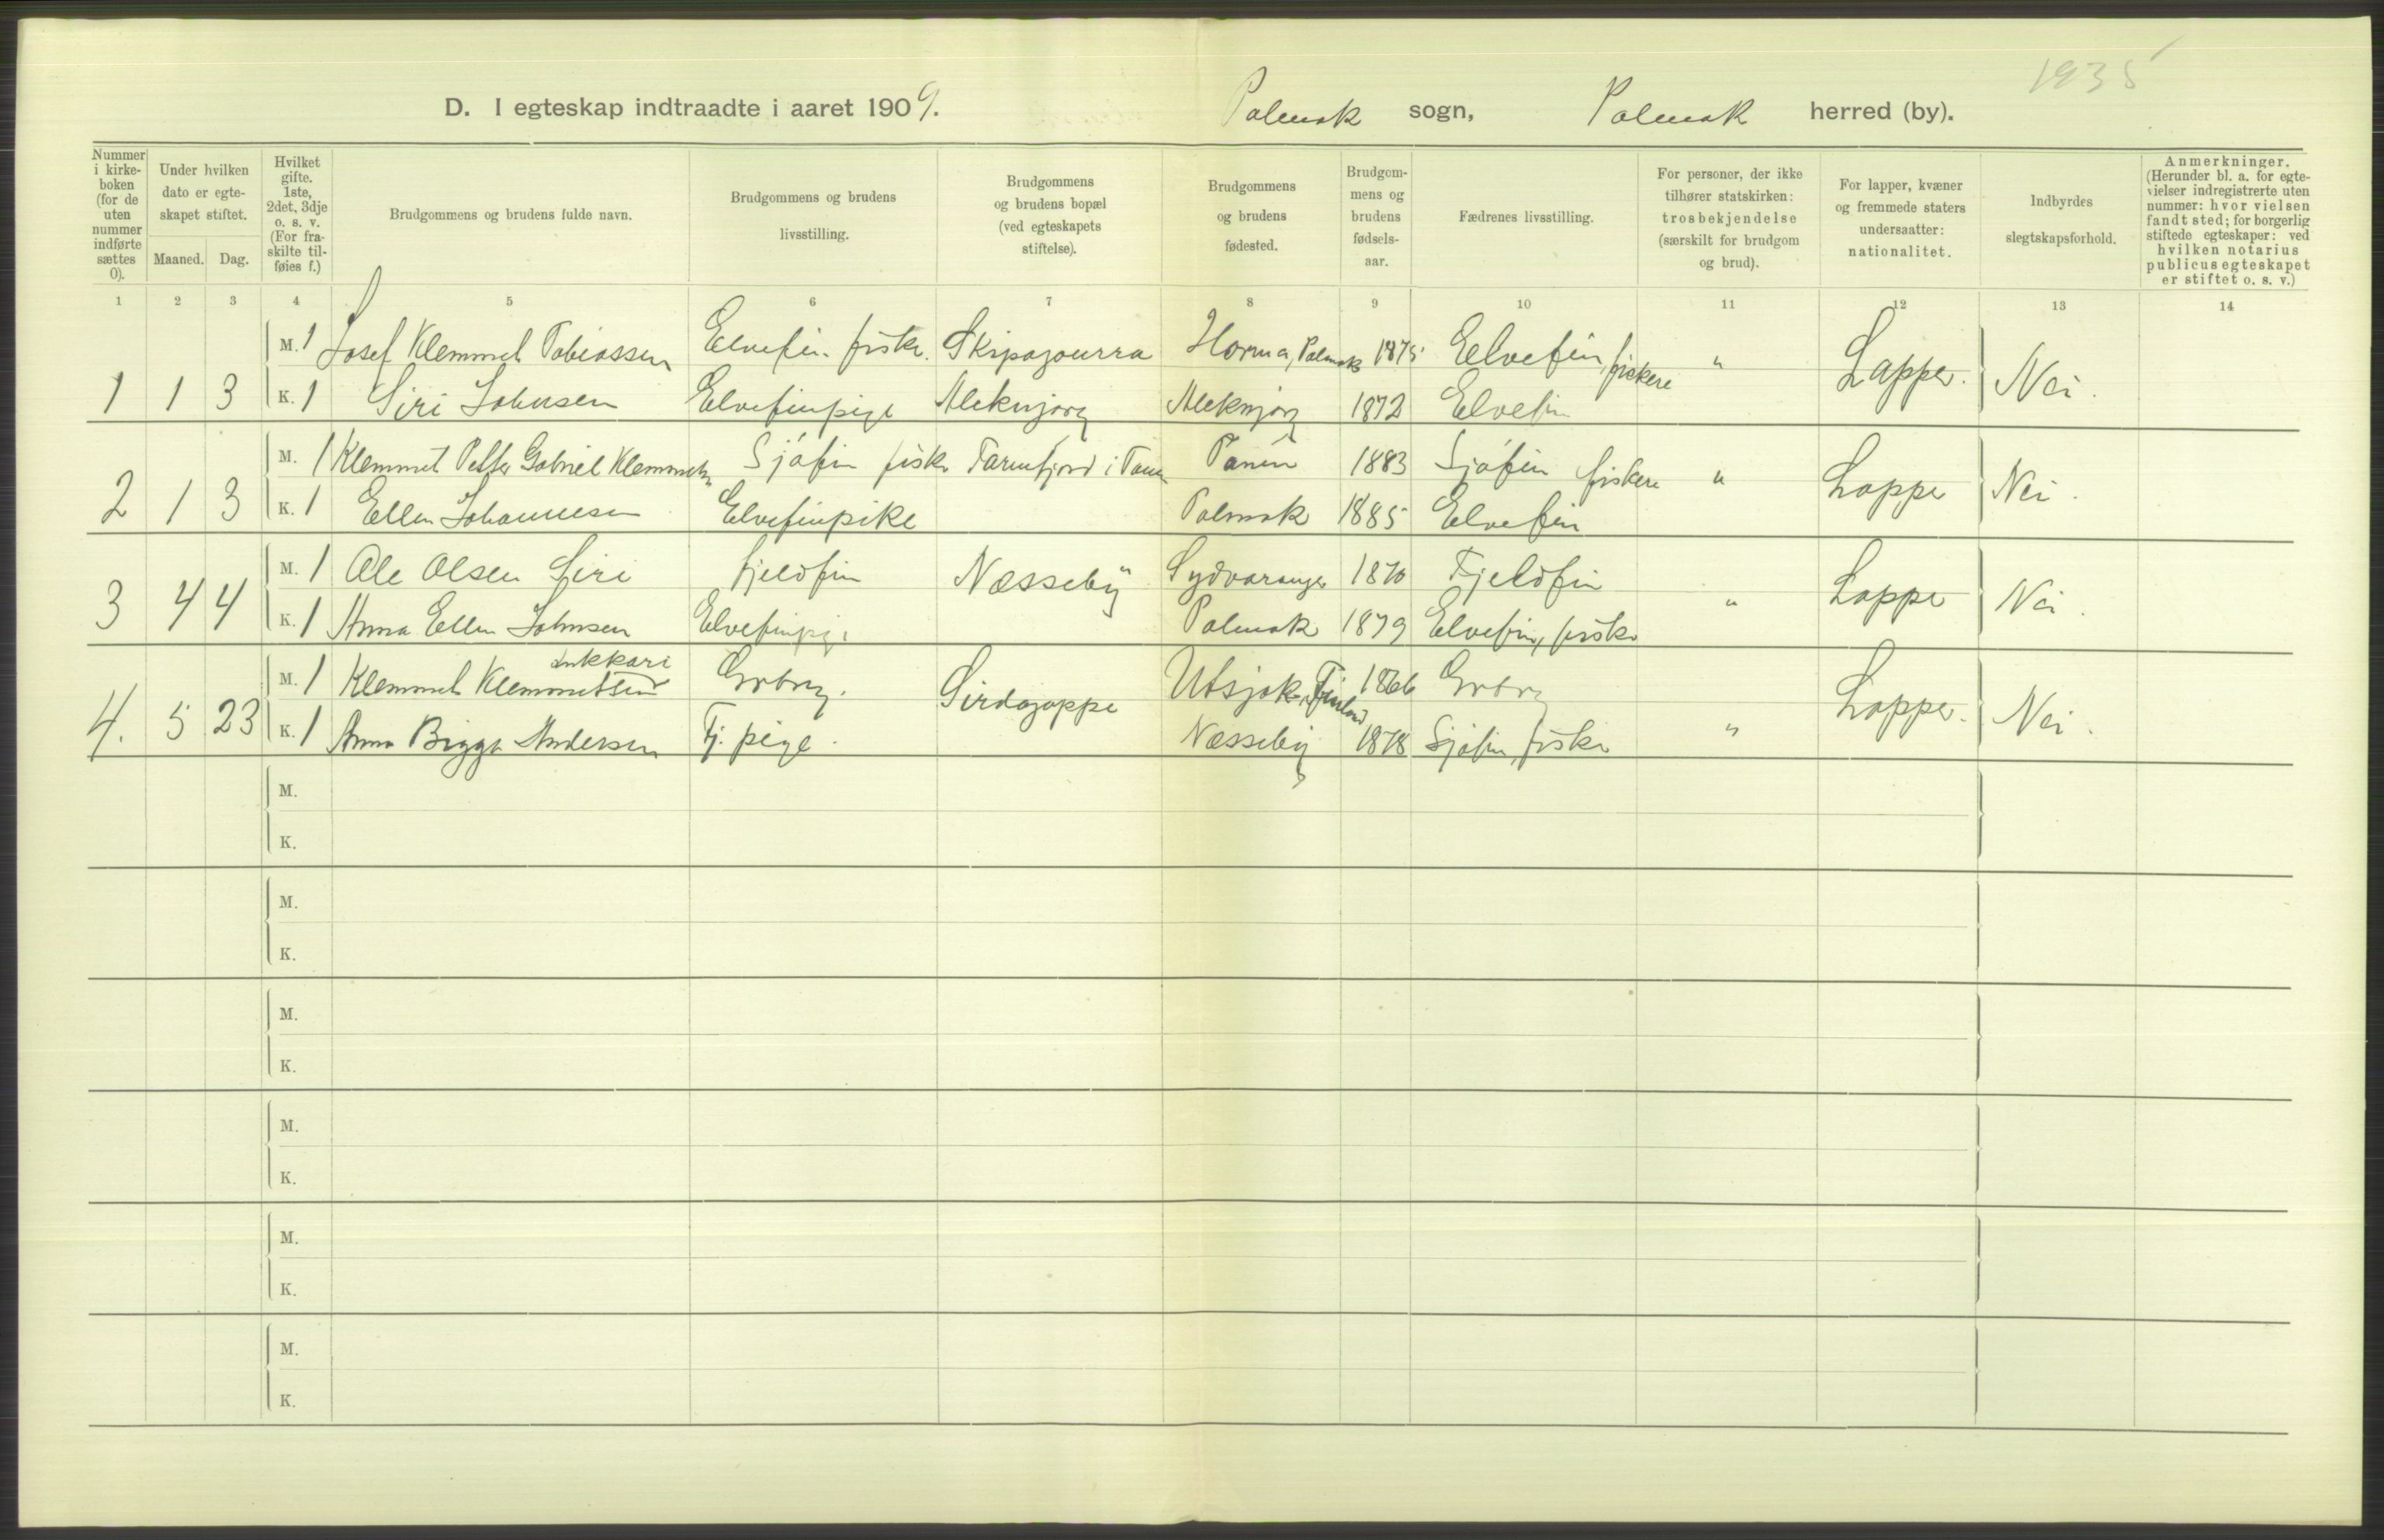 1935
D. I egteskap indtraadte i aaret 1909. Polmak sogn, Polmak herred (by).
Nummer i kirkeboken (for de uten nummer indførte sættes 0).
Under hvilken dato er egteskapet stiftet.
Maaned. Dag.
Hvilket gifte. 1ste, 2det, 3dje o. s. v. (For fraskilte tilføies f.)
Brudgommens og brudens fulde navn.
Brudgommens og brudens livsstilling.
Brudgommens og brudens bopæl (ved egteskapets stiftelse).
Brudgommens og brudens fødested.
Brudgommens og brudens fødselsaar.
Fædrenes livsstilling.
For personer, der ikke tilhører statskirken: trosbekjendelse (særskilt for brudgom og brud).
For lapper, kvæner og fremmede staters undersaatter: nationalitet.
Indbyrdes slegtskapsforhold.
Anmerkninger. (Herunder bl. a. for egtevielser indregistrerte uten nummer: hvor vielsen fandt sted; for borgerlig stiftede egteskaper: ved hvilken notarius publicus egteskapet er stiftet o. s. v.)
1 2 3 4 5 6 7 8 9 10 11 12 13 14
M. 1 Josef Klemmet Tobiassen Elvefin. fisker. Skipagurra Horma, Polmak 1875 Elvefin, fiskere " Lapper. Nei.
1 1 3 K. 1 Siri Johnsen Elvefinpige Aleknjarg Aleknjarg 1872 Elvefin
M. 1 Klemmet Petter Gabriel Klemmetsen Sjøfin fisker Tarmfjord i Tanen Tanen 1883 Sjøfin fiskere " Lapper Nei.
2 1 3 K. 1 Ellen Johannesen Elvefinpike Polmak 1885 Elvefin
M. 1 Ole Olsen Siri fjeldfin Næsseby Sydvaranger 1870 Fjeldfin " Lapper Nei.
3 4 4 K. 1 Anna Ellen Johnsen Elvefinpige Polmak 1879 Elvefin, fisker
Lukkari
M. 1 Klemmet Klemmetsen Grbrg. Sirdagoppe Utsjok, Finland 1866 Grbrg " Lapper. Nei.
4. 5 23 K. 1 Anna Bigga Andersen Tj. pige. Næsseby 1878 Sjøfin, fisker
M.
K.
M.
K.
M.
K.
M.
K.
M.
K.
M.
K.